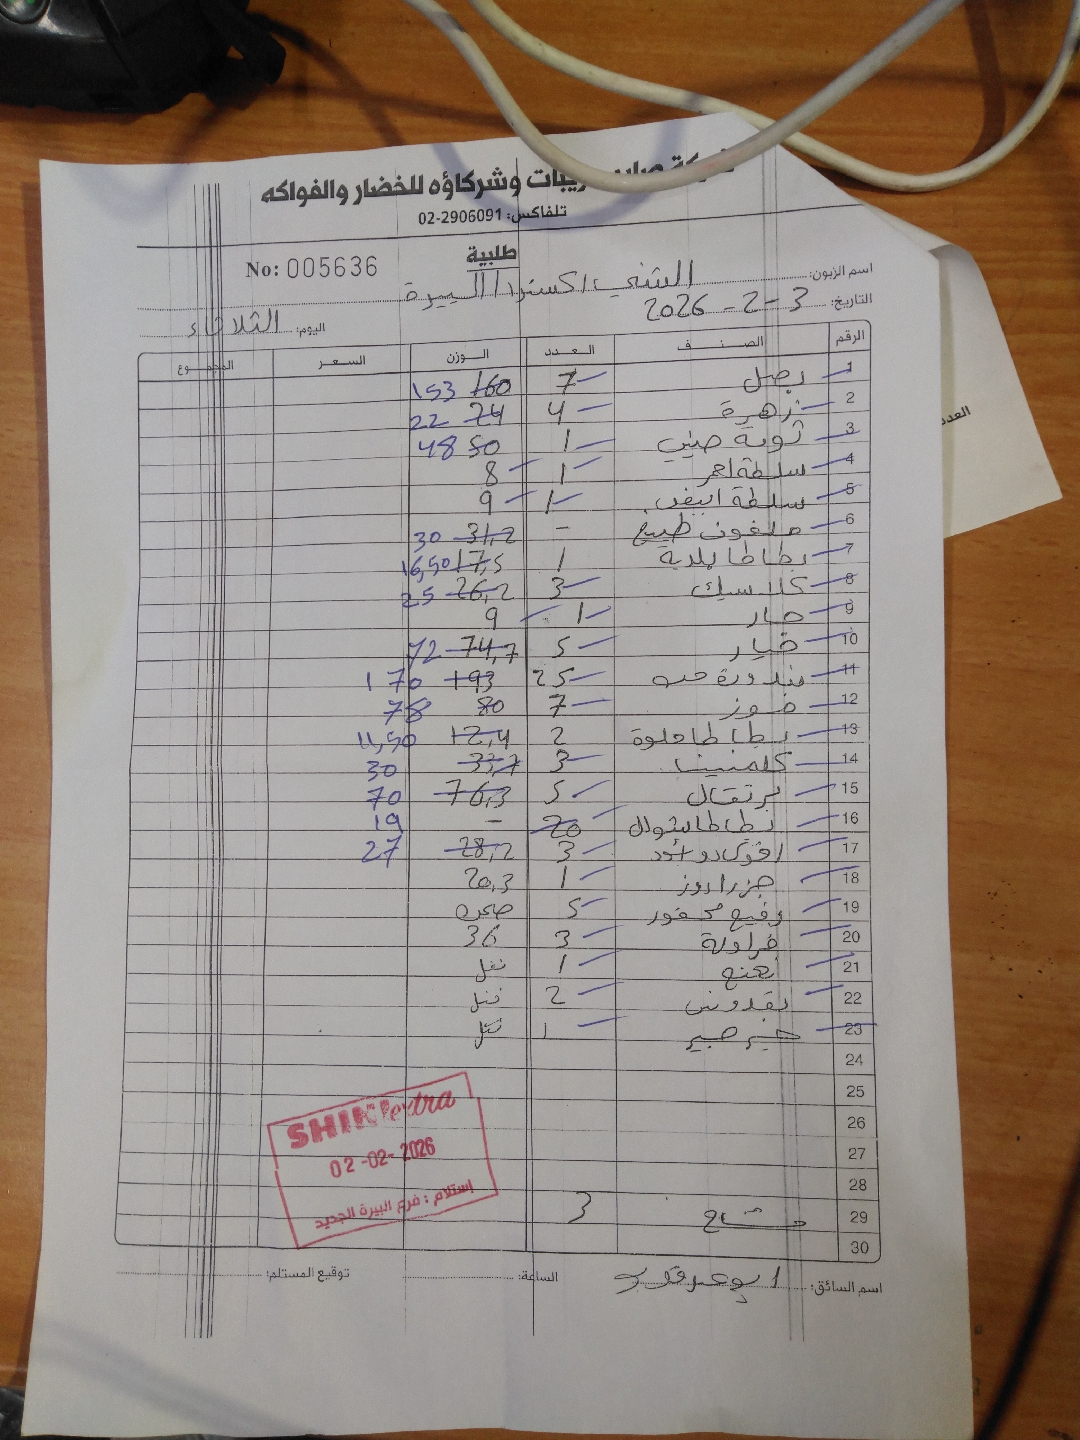 وشركاؤه للخضار والفواكه
تلفاكس: 02-2906091
طلبية
No: 005636
اسم الزبون: الشني اكسترا البيرة
التاريخ: 3-2-2026
اليوم: الثلاثاء
الرقم الصنف العدد الوزن السعر المجموع
1 بصل 7 160 153
2 زهرة 4 24 22
3 ثومة صيني 1 50 48
4 سلطة احمر 1 8
5 سلطة ابيض 1 9
6 ملفوف طبيخ - 31,2 30
7 بطاطا بلدية 1 17,5 16,50
8 كلاسيك 3 26,2 25
9 حار 1 9
10 خيار 5 74,7 72
11 بندورة حب 25 193 170
12 موز 7 80 78
13 بطاطا حلوة 2 12,4 11,50
14 كلمنتينا 3 33,7 30
15 برتقال 5 76,3 70
16 بطاطا شوال 20 - 19
17 افوكادو أسود 3 28,2 27
18 جزر 1 20,3
19 محفور 5 صحن
20 فراولة 3 36
21 نعنع 1
22 بقدونس 2
23 1
24
25
26
27
28
29 مشتاح 3
30
SHINI extra
02-02-2026
إستلام : فرع البيرة الجديد
اسم السائق:
الساعة:
توقيع المستلم:
العدد